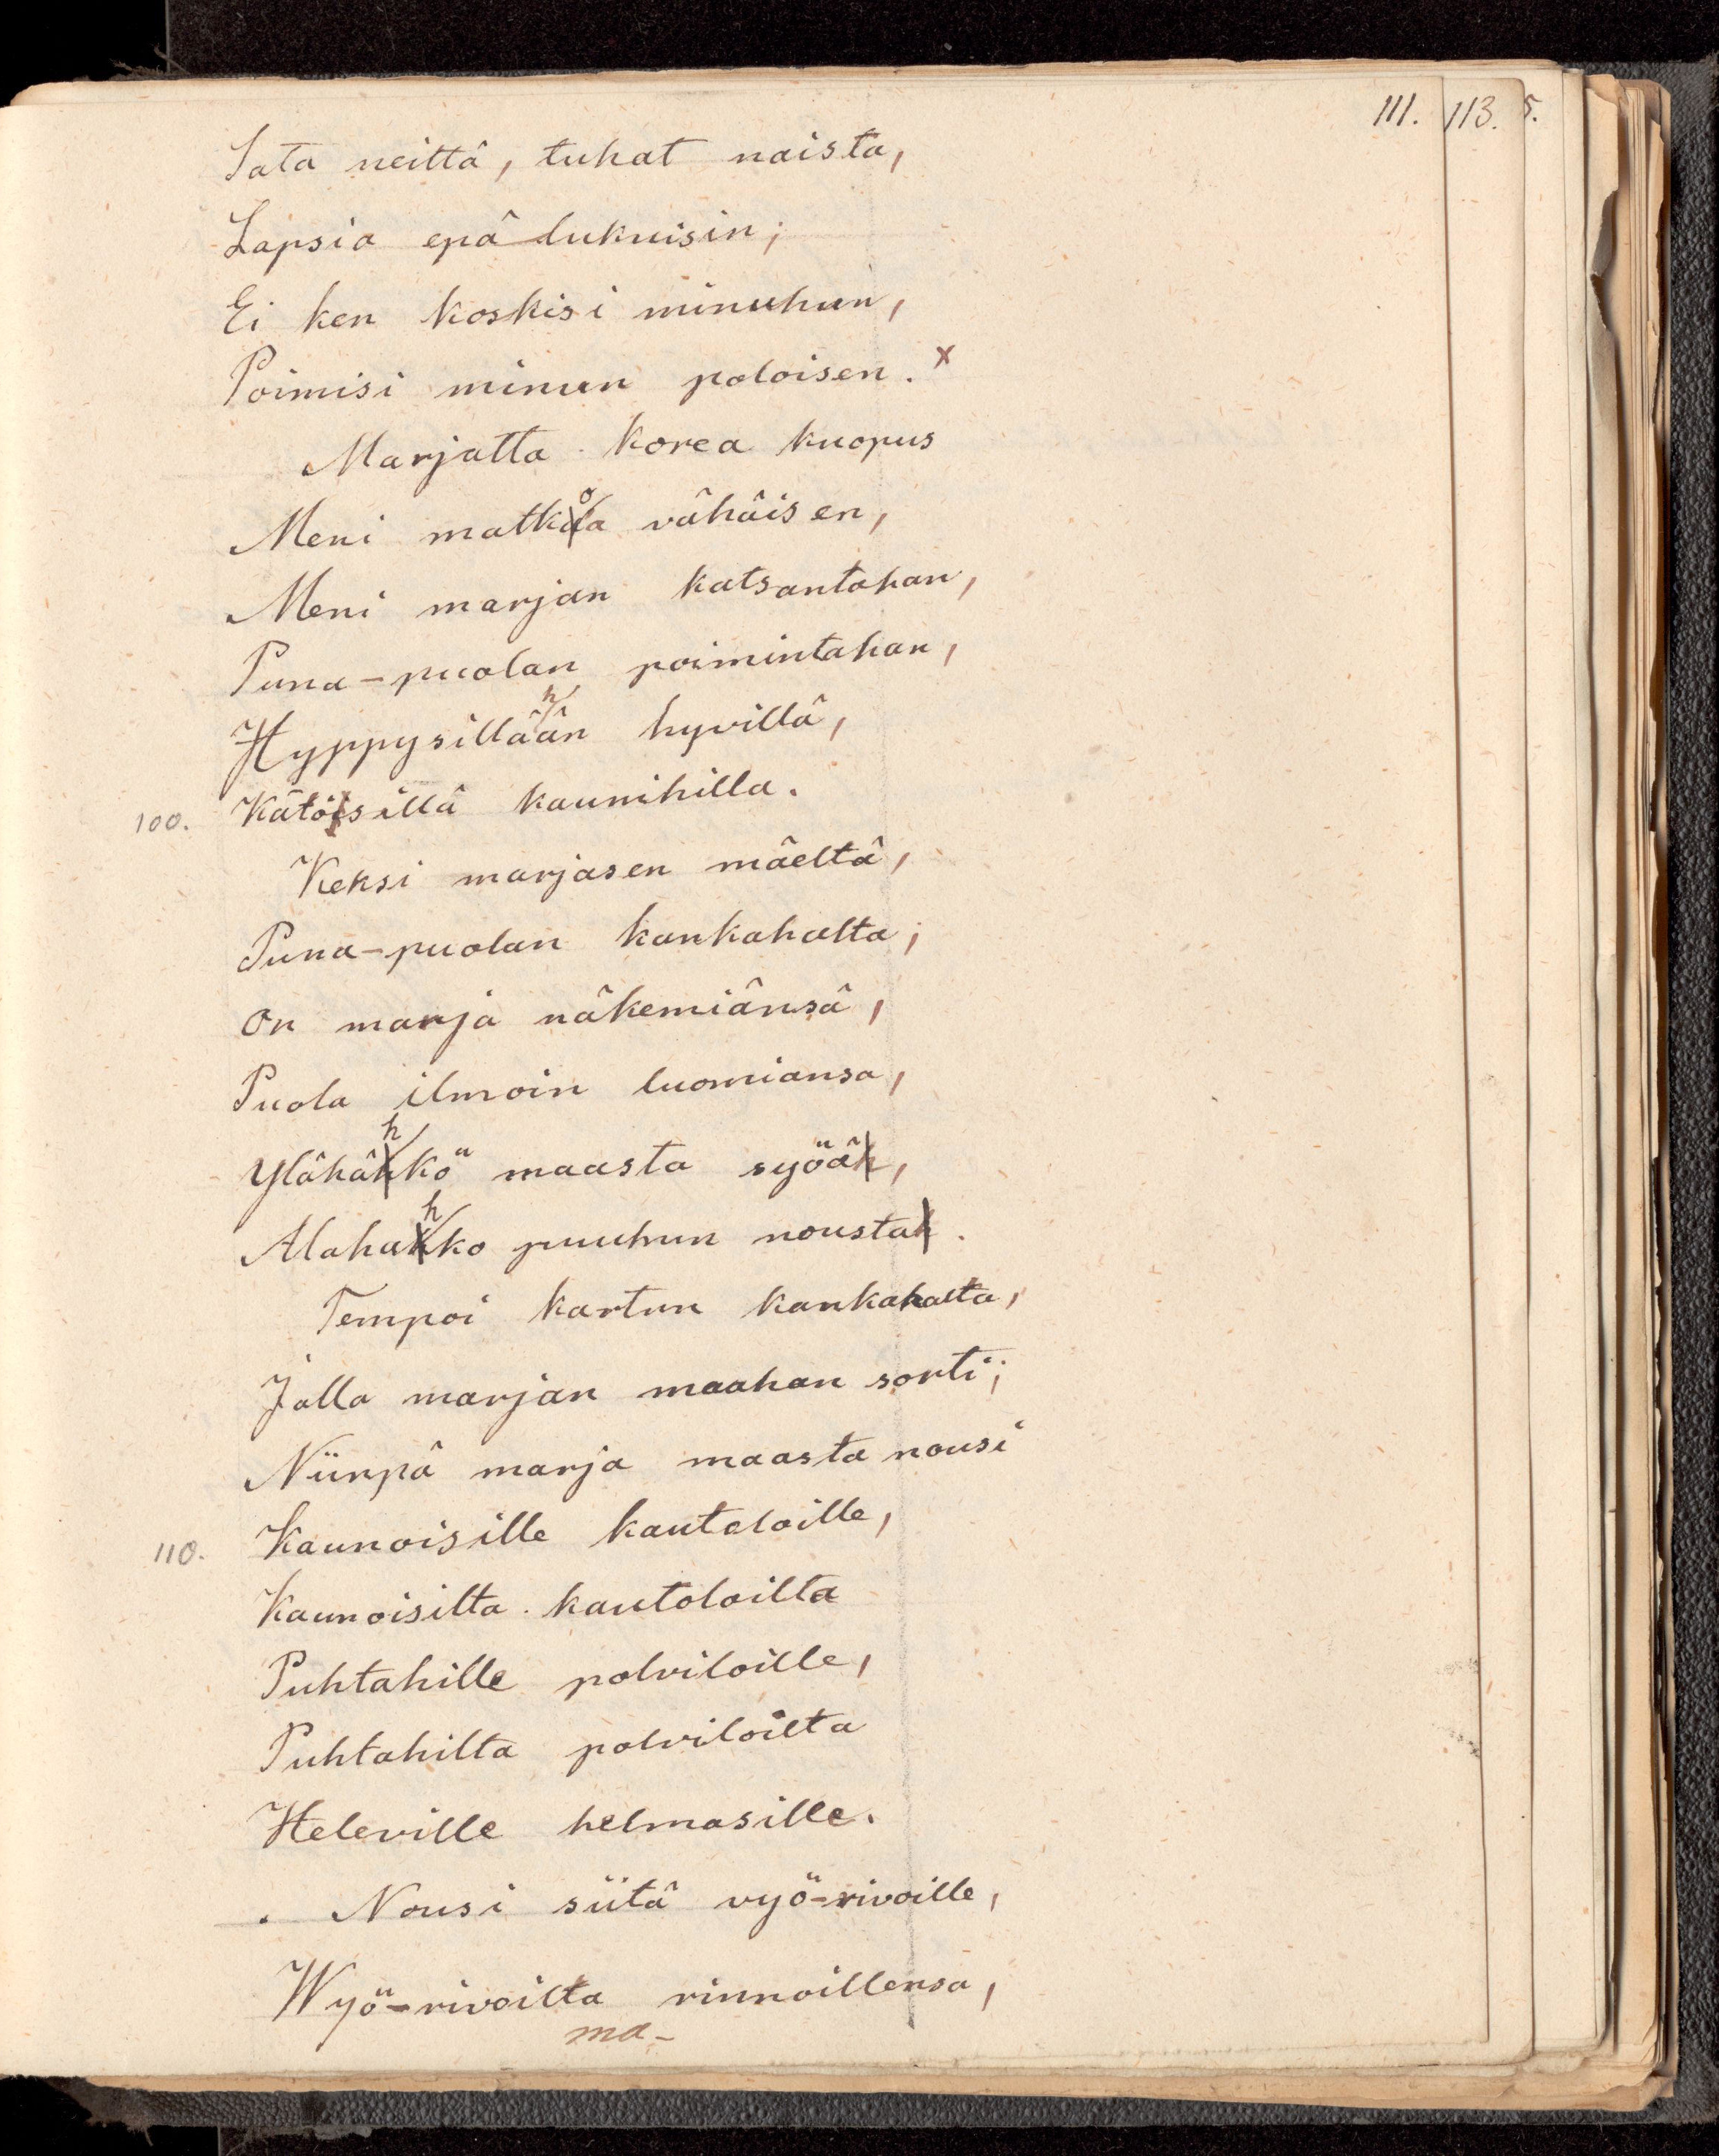 111. 113. 5.
Sata neittä, tuhat naista,
Lapsia epä lukuisin;
Ei ken koskisi minuhun,
Poimisi minun poloisen. x
Marjatta korea kuopus
Meni matkoa vähäisen,
Meni marjan katsantahan,
Puna-puolan poimintahan,
Hyppysillähän hyvillä,
100. Kätösillä kaunihilla.
Keksi marjasen mäeltä,
Puna-puolan kankahalta;
On marja näkemiänsä,
Puola ilmoin luomiansa,
Ylähähkö maasta syöä,
Alahahko puuhun nousta.
Tempoi kartun kankahalta,
Jolla marjan maahan sorti;
Niinpä marja maasta nousi
110. Kaunoisille kautoloille,
Kaunoisilta kautoloilta
Puhtahille polviloille,
Puhtahilta polviloilta
Heleville helmasille.
Nousi siitä vyö-rivoille,
Wyö-rivoilta rinnoillensa,
ma-